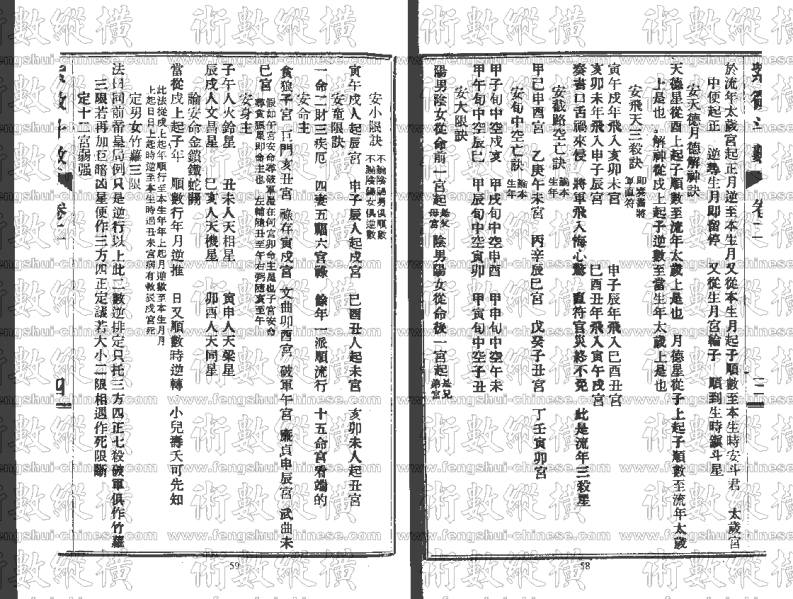 於流年太歲宮起正月逆至本生月又從本生月起子順數至本生時安斗君 太歲宮
中便起正 逆尋生月即留停 又從生月宮輪子 順到生時鎭斗星
安天德月德解神訣
天德星從酉上起子順數至流年太歲上是也 月德星從子上起子順數至流年太歲
上是也 解神從戌上起子逆數至當生年太歲上是也
安飛天三殺訣 即奏書將軍直符
寅午戌年飛入亥卯未宮 申子辰年飛入巳酉丑宮
亥卯未年飛入申子辰宮 巳酉丑年飛入寅午戌宮
奏書口舌禍來侵 將軍飛入悔心驚 直符官災終不免 此是流年三殺星
安截路空亡訣 論本生年
甲己申酉宮 乙庚午未宮 丙辛辰巳宮 戊癸子丑宮 丁壬寅卯宮
安旬中空亡訣 論本生年
甲子旬中空戌亥 甲戌旬中空申酉 甲申旬中空午未
甲午旬中空辰巳 甲辰旬中空寅卯 甲寅旬中空子丑
安大限訣
陽男陰女從命前一宮起是父母宮 陰男陽女從命後一宮起是兄弟宮
58
安小限訣 不論陰陽男俱順數不論陰陽女俱逆數
寅午戌人起辰宮 申子辰人起戌宮 巳酉丑人起未宮 亥卯未人起丑宮
安童限訣
一命二財三疾厄 四妻五福六官祿 餘年一派順流行 十五命宮看端的
安命主
貪狼子宮 巨門亥丑宮 祿存寅戌宮 文曲卯酉宮 破軍午宮 廉貞申辰宮 武曲未
巳宮
安身主
子午人火鈴星 丑未人天相星 寅申人天梁星
辰戌人文昌星 巳亥人天機星 卯酉人天同星
論安命金鎖鐵蛇關
當從戌上起子年 順數行年月逆推 日又順數時逆轉 小兒壽夭可先知
定男女竹蘿三限
法曰同前帝是局例只是逆行以上此二數逆排定只托三方四正七殺破軍俱作竹蘿
三限若再加巨暗凶星便作三方四正定議若大小二限相遇作死限斷
定十二宮弱强
59